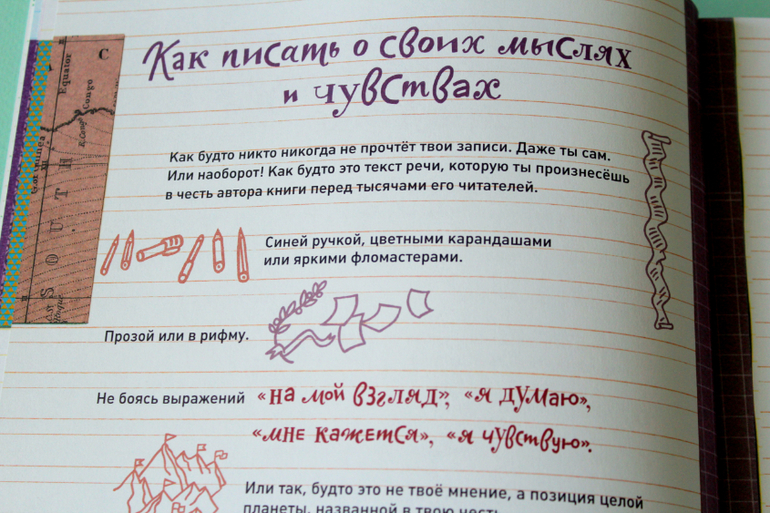 Как писать о своих мыслях
и чувствах
Как будто никто никогда не прочтёт твои записи. Даже ты сам.
Или наоборот! Как будто это текст речи, которую ты произнесёшь
в честь автора книги перед тысячами его читателей.
Синей ручкой, цветными карандашами
или яркими фломастерами.
Прозой или в рифму.
Не боясь выражений «на мой взгляд», «я думаю»,
«мне кажется», «я чувствую».
Или так, будто это не твоё мнение, а позиция целой
планеты, названной в твою честь
C
Equator
Congo
SOUTH